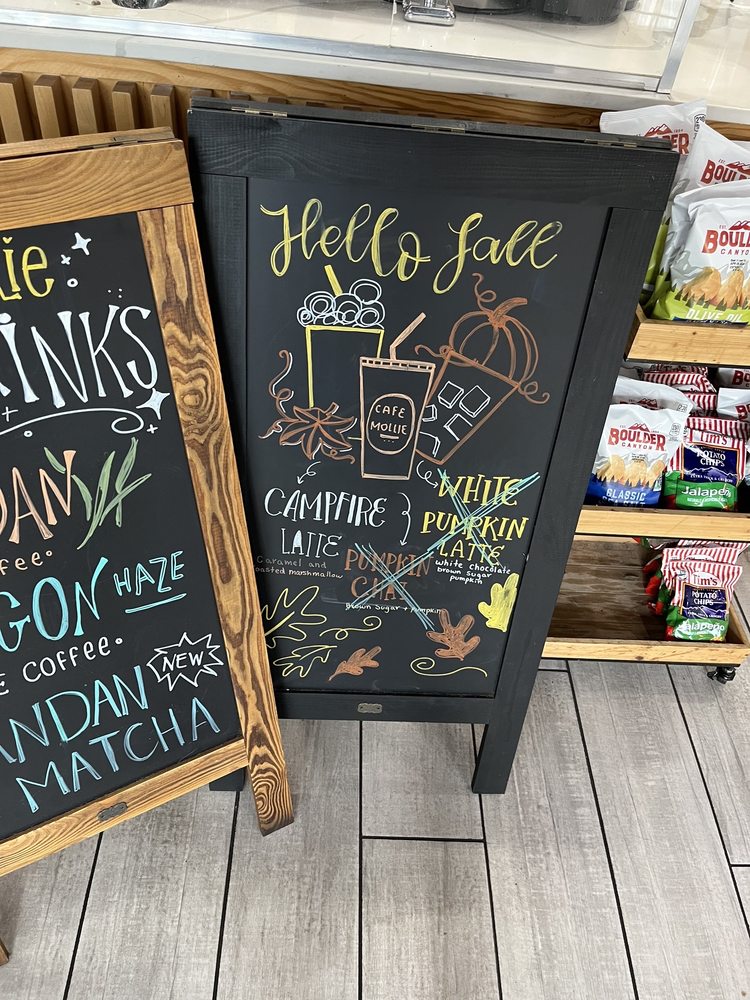 Hello Fall
CAFE
MOLLIE
CAMPFIRE
LATTE
Caramel and
toasted marshmallow
WHITE
PUMPKIN
LATTE
white chocolate
brown sugar
pumpkin
PUMPKIN
CHAI
Brown Sugar + Pumpkin
lie
INKS
DAN
fee
GON HAZE
E COFFEE
NEW
ANDAN
MATCHA
BOULDER
CANYON
OLIVE OIL
BOULDER
CANYON
CLASSIC
Tim's
POTATO
CHIPS
Jalapeño
Tim's
POTATO
CHIPS
Jalapeño